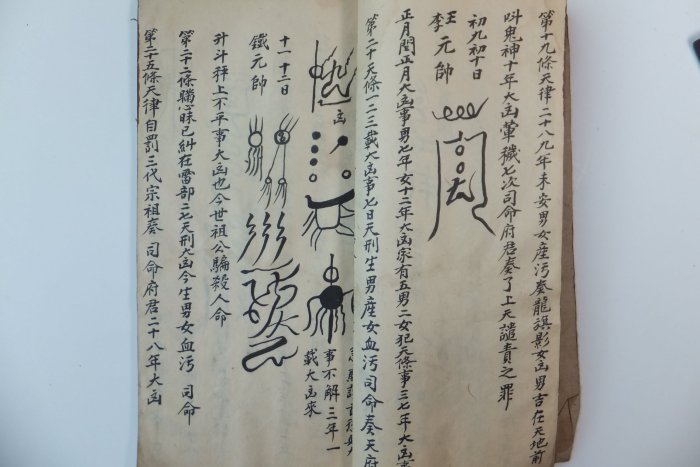 第十九條天律二十八九年未安男女產污奏龍旗影女凶男吉在天地前
呌鬼神十年大凶葷穢七次司命府君奏了上天譴責之罪
初九初十日
王
李元帥
正月閏正月大凶事男七年女十二年大凶宗有五男二女犯天條事三七年大凶
第二十天條一二三載大凶事七日天刑生男產女血污司命奏天府
凶
事不解三年一
載大凶來
十一十二日
鐵元帥
升斗秤上不平事大凶也今世祖公騙殺人命
第二十二條瞞心昧己糾在雷部二七天刑大凶今生男女血污 司命
第二十五條天律自罰三代宗祖奏 司命府君二十八年大凶